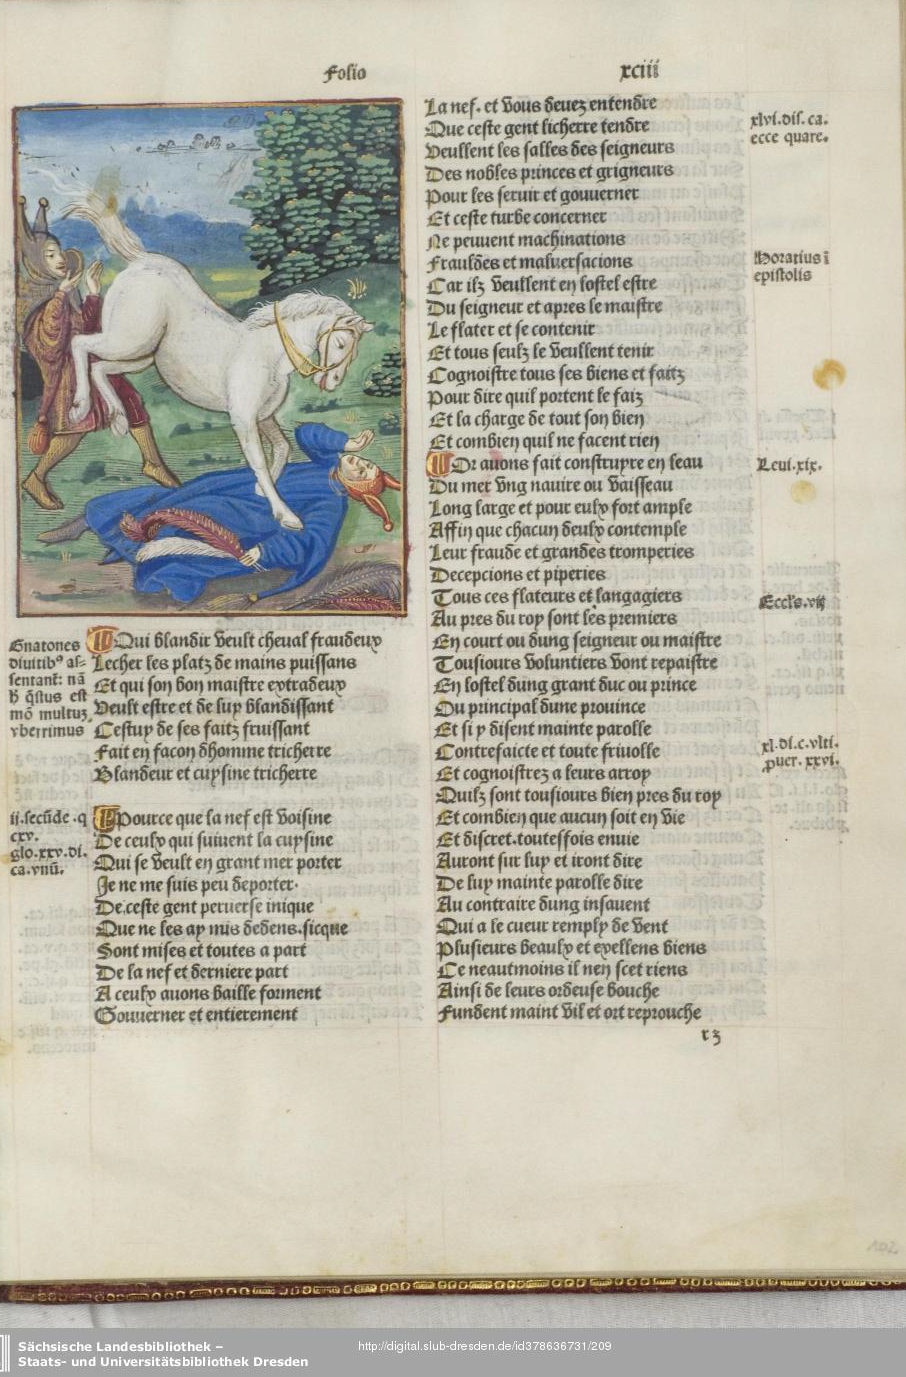 Folio
xciii
Gnatones
diuitibꝰ as-
sentant: nā
h̄ q̄stus est
mō multuʒ
vberrimus
Qui blandir veult cheval fraudeux
Lecher les platz de mains puissans
Et qui son bon maistre extradeux
Veult estre et de luy blandissant
Cestuy de ses faitz fruissant
Fait en facon dhomme tricherre
Blandeur et cuysine tricherre
ii. secūde. q
cxv.
glo. xxv. di.
ca. vnū.
Pource que la nef est voisine
De ceulx qui suiuent la cuysine
Qui se veult en grant mer porter
Je ne me suis peu deporter.
De ceste gent peruerse inique
Que ne les ay mis dedens. sicque
Sont mises et toutes a part
De la nef et derniere part
A ceulx auons baille forment
Gouuerner et entierement
La nef. et vous deuez entendre
Que ceste gent licherre tendre
Veullent les salles des seigneurs
Des nobles princes et grigneurs
Pour les seruir et gouuerner
Et ceste turbe concerner
Ne peuuent machinations
Frauldes et maluersacions
Car ilz veullent en lostel estre
Du seigneur et apres le maistre
Le flater et se contenir
Et tous seulz le veullent tenir
Cognoistre tous ses biens et faitz
Pour dire quil portent le faiz
Et la charge de tout son bien
Et combien quil ne facent rien
Or auons fait construyre en leau
Du mer vng nauire ou vaisseau
Long large et pour eulx fort ample
Affin que chacun deulx contemple
Leur fraude et grandes tromperies
Decepcions et piperies
Tous ces flateurs et langagiers
Au pres du roy sont les premiers
En court ou dung seigneur ou maistre
Tousiours voluntiers vont repaistre
En lostel dung grant duc ou prince
Ou principal dune prouince
Et si y disent mainte parolle
Contrefaicte et toute friuolle
Et cognoistrez a leurs arroy
Quilz sont tousiours bien pres du roy
Et combien que aucun soit en vie
Et discret. toutesfois enuie
Auront sur luy et iront dire
De luy mainte parolle dire
Au contraire dung insauent
Qui a le cueur remply de vent
Plusieurs beaulx et exellens biens
Ce neautmoins il nen scet riens
Ainsi de leurs ordeuse bouche
Fundent maint vil et ort reprouche
r3
xlvi. dis. ca.
ecce quare.
Horatius ī
epistolis
Leui. xix.
Eccl's. vij
xl. di. c. vlti.
ꝓuer. xxvi.
102
Sächsische Landesbibliothek –
Staats- und Universitätsbibliothek Dresden
http://digital.slub-dresden.de/id378636731/209